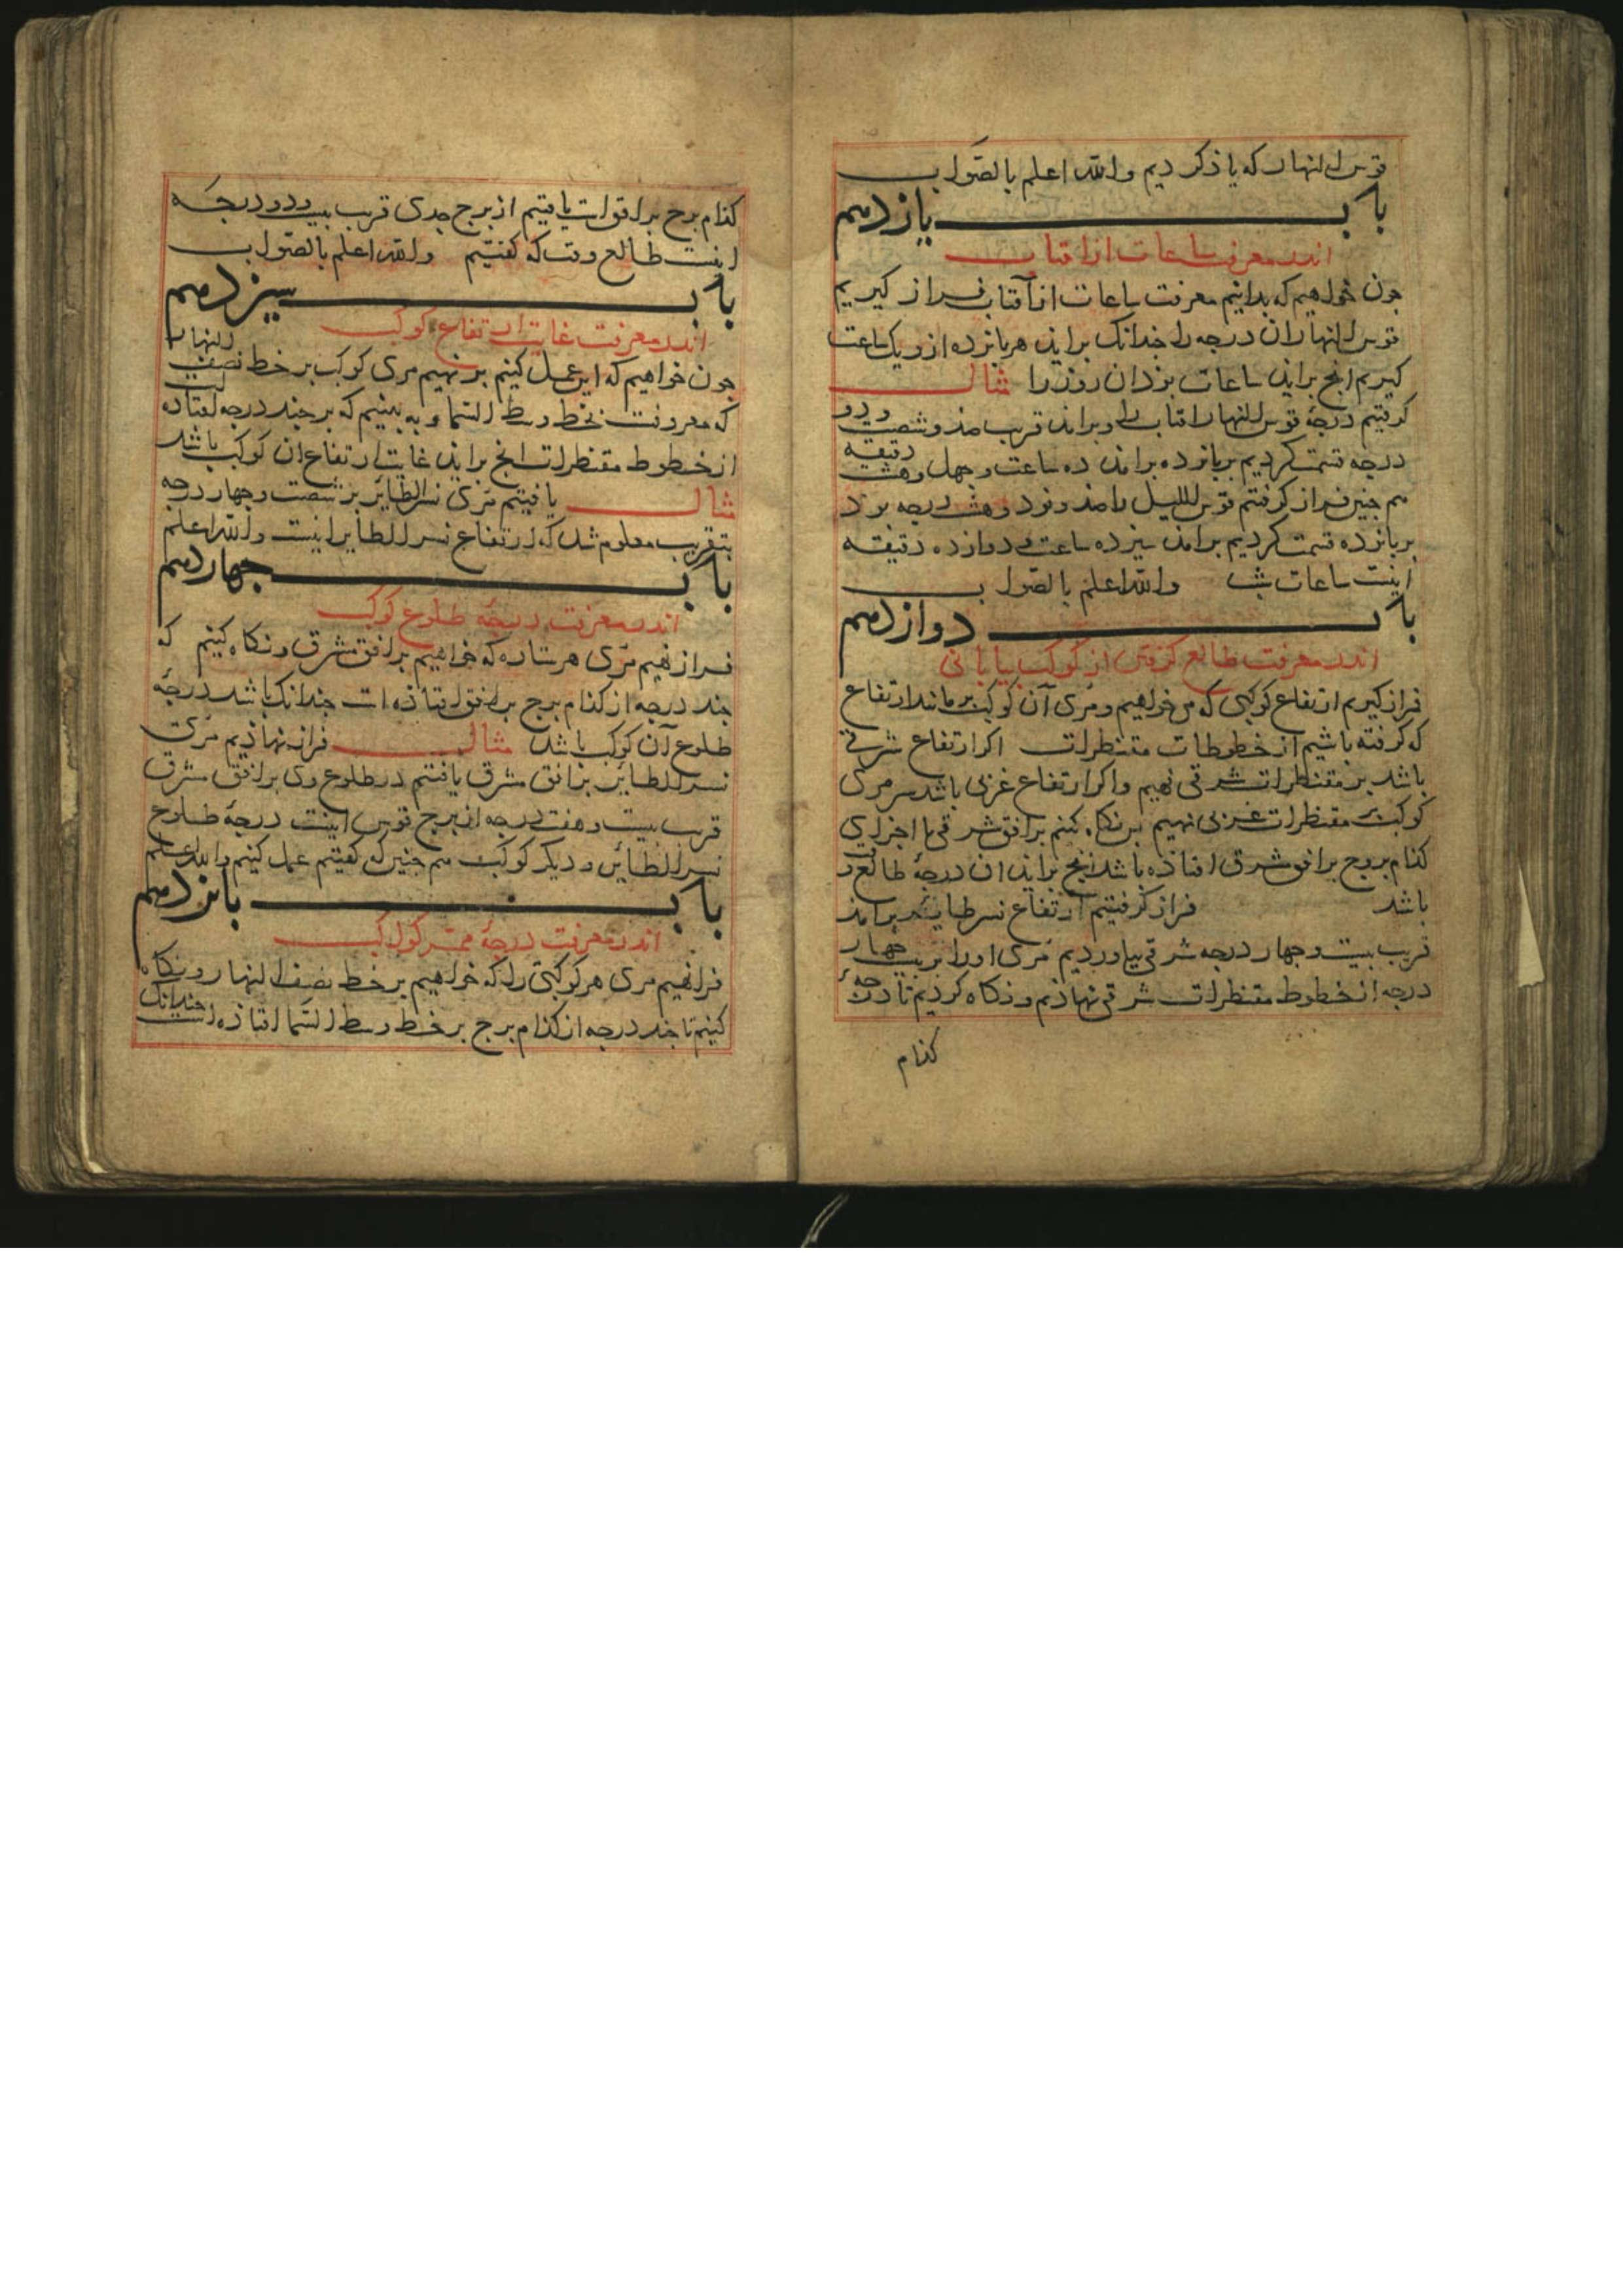 قوس النهار که یاذ کردیم والله اعلم بالصواب
باب یازدهم
اندر معرفت ساعات از افتاب
جون خواهیم که بدانیم معرفت ساعات از آفتاب فراز کیریم
قوس النهار ان درجه را جندانک براید هر بانزده ازو یک ساعت
کیریم انج براید ساعات بوذ ان روز را مثال
کرفتیم درجهٔ قوس النهار افتاب را و برامد قریب صذ و شصت و دو
درجه قسمت کردیم بر بانزده برامد ده ساعت و جهل و هشت دقیقه
هم جنین فراز کرفتم قوس اللیل را صذ و نود و هشت درجه بوذ
بر بانزده قسمت کردیم برامد سیزده ساعت و دوازده دقیقه
اینست ساعات شب والله اعلم بالصواب
باب دوازدهم
اندر معرفت طالع کرفتن از کوکب بیابانی
فراز کیریم ارتفاع کوکبی که می خواهیم و مری آن کوکب بر مانند ارتفاع
که کرفته باشیم از خطوطات مقنطرات اکر ارتفاع شرقی
باشد بر مقنطرات شرقی نهیم واکر ارتفاع غربی باشد سر مری
کوکب بر مقنطرات غربی نهیم بر نکاه کنیم بر افق شرقی تا اجزای
کذام بروج بر افق شرق افتاذه باشد انج براید ان درجهٔ طالع وقت
باشد فراز کرفتیم ارتفاع نسر طایر برامذ
قریب بیست و جهار درجه شرقی بیاوردیم مری او را بر بیست جهار
درجه از خطوط مقنطرات شرقی نهاذیم و نکاه کردیم تا درجهٔ
کذام
کذام برج بر افق است یافتیم از برج جدی قریب بیست و دو درجه
اینست طالع وقت که کفتیم والله اعلم بالصواب
باب سیزدهم
اندر معرفت غایت ارتفاع کوکب
جون خواهیم که این عمل کنیم بر نهیم مری کوکب بر خط نصف النهار
که معروفست بخط وسط السما و به بینیم که بر جند درجه افتاده است
از خطوط مقنطرات انج براید غایت ارتفاع ان کوکب باشد
مثال یافتیم مری نسر الطایر بر شصت و جهار درجه
بتقریب معلوم شد که ارتفاع نسر الطایر اینست والله اعلم
باب جهاردهم
اندر معرفت درجهٔ طلوع کوکب
فراز نهیم مری هر ستاره که خواهیم بر افق مشرق و نکاه کنیم که
جند درجه از کذام برج بر افق افتاذه است جندانک باشد درجهٔ
طلوع آن کوکب باشد مثال فراز نهاذیم مری
نسر الطایر بر افق مشرق یافتم در طلوع وی بر افق مشرق
قریب بیست و هفت درجه از برج قوس اینست درجهٔ طلوع
نسر الطایر و دیکر کوکب هم جنین که کفتیم عمل کنیم والله اعلم
باب بانزدهم
اندر معرفت درجهٔ ممر کواکب
فرا نهیم مری هر کوکبی را که خواهیم بر خط نصف النهار و نکاه
کنیم تا جند درجه از کذام برج بر خط وسط السما افتاذه است جندانک